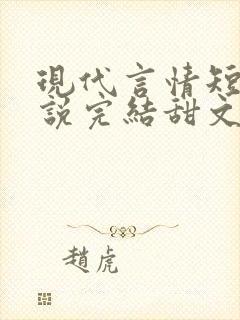 現代言情短
說完結甜文
趙虎